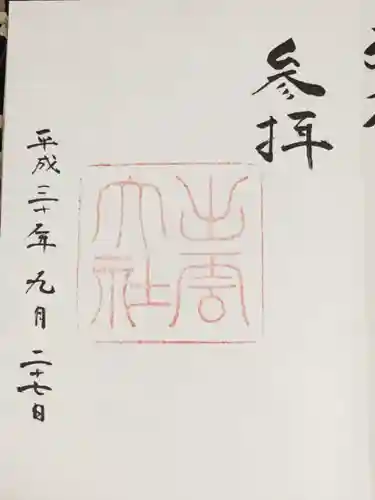 参拝
出雲
大社
平成三十年九月二十七日